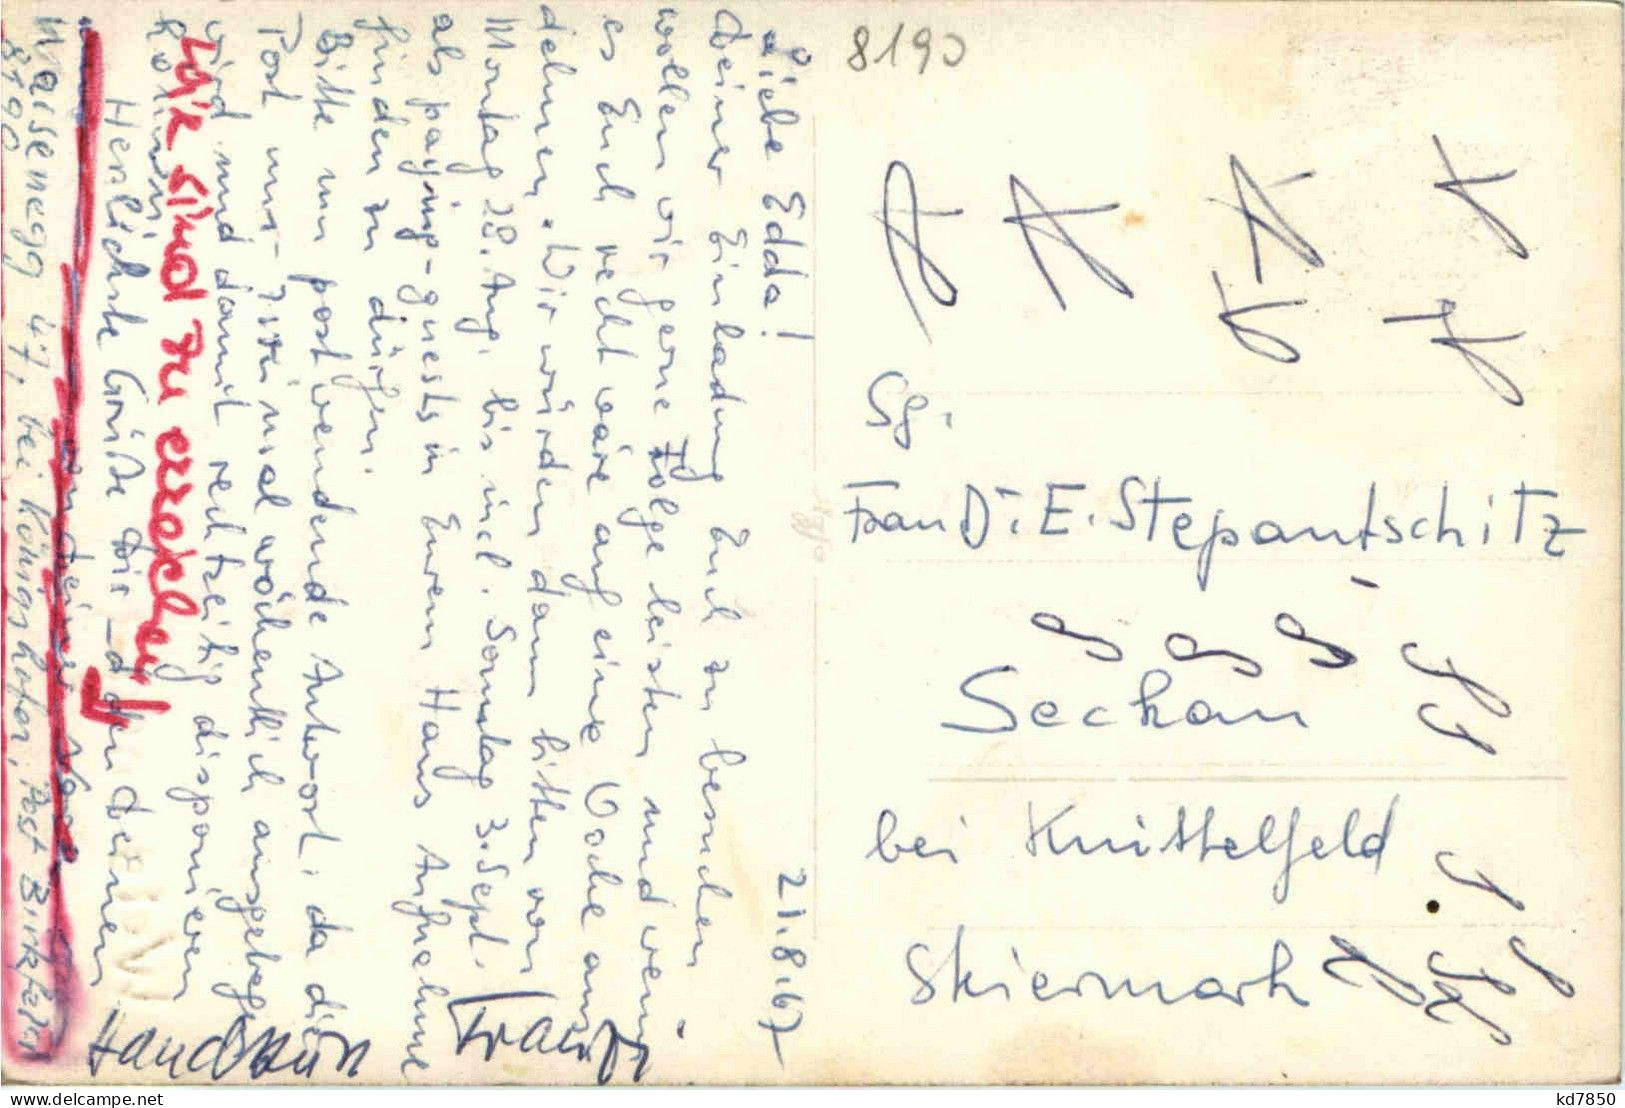 8190
21.8.67
Liebe Edda!
Deiner Einladung Euch zu besuchen
wollen wir gerne Folge leisten und wenn
es Euch recht wäre auf eine Woche aus-
dehnen. Wir würden dann bitten von
Montag 28. Aug. bis incl. Sonntag 3. Sept.
als paying-guests in Eurem Haus Aufnahme
finden zu dürfen.
Bitte um postwendende Antwort, da die
Post nur zweimal wöchentlich ausgetragen
wird und damit rechtzeitig disponieren
können
Herzlichste Grüße Dir - den Deinen
Wir sind zu erreichen
Waisenegg 47, bei Königshofer, Post Birkfeld
8190
Handkuss
Traudi
Sg.
Frau Dr. E. Stepantschitz
Seckau
bei Knittelfeld
Steiermark
kd7850